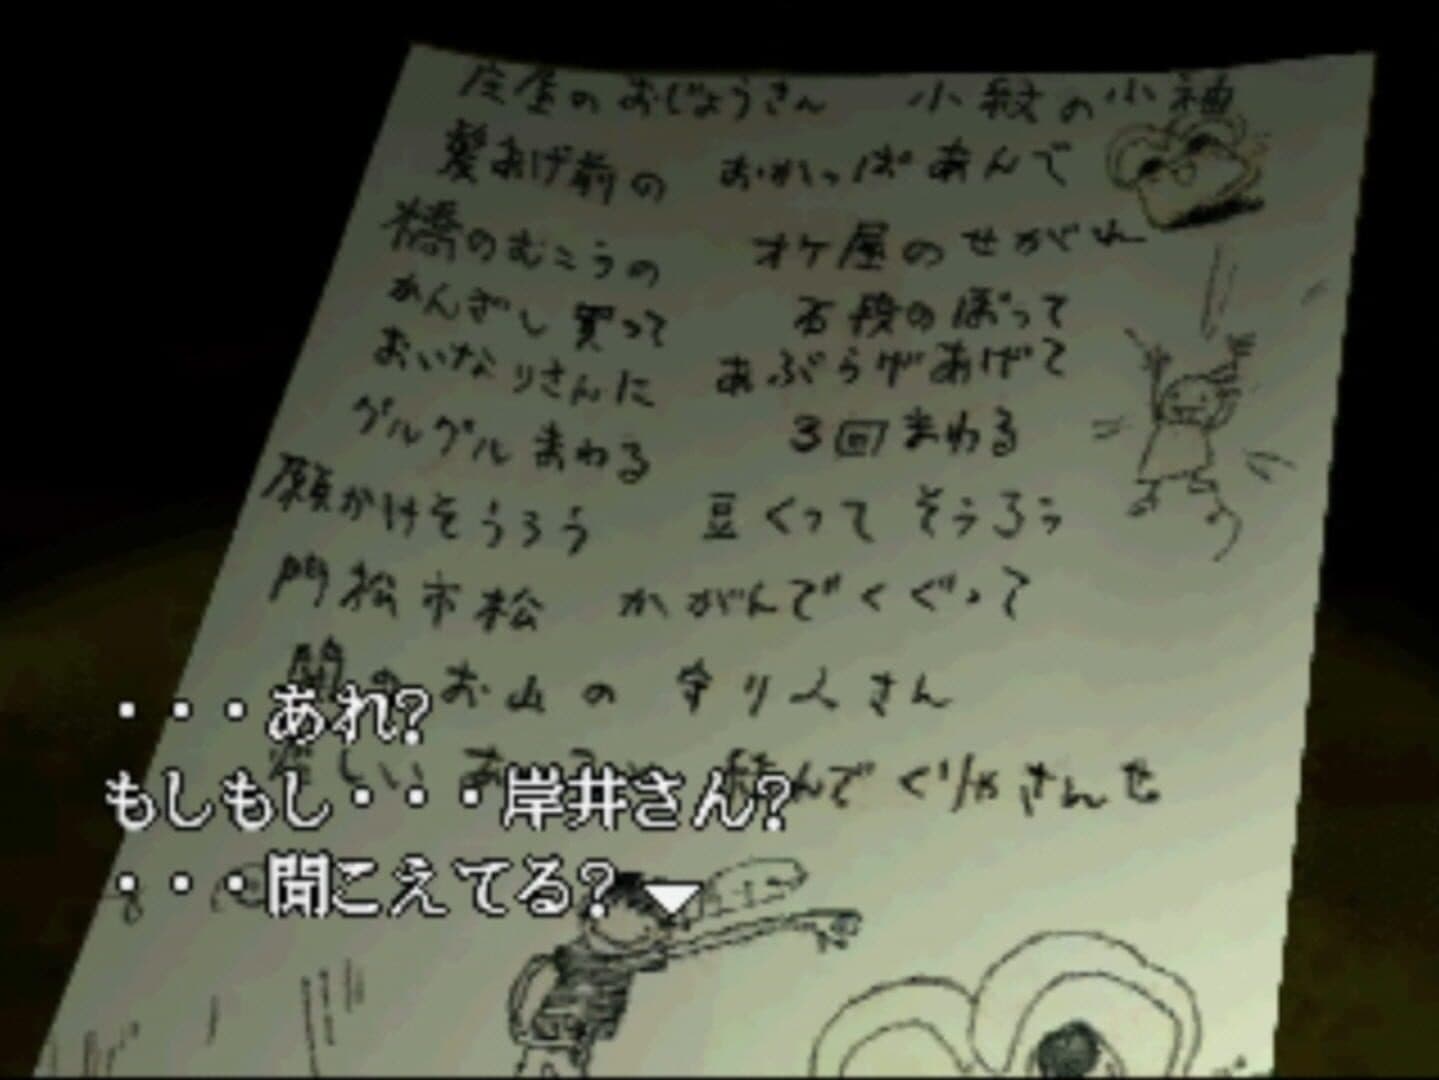 庄屋のおじょうさん 小紋の小袖
髪あげ前の おかっぱあんで
橋のむこうの オケ屋のせがれ
かんざし買って 石段のぼって
おいなりさんに あぶらげあげて
グルグルまわる 3回まわる
願かけそうろう 豆くってそうろう
門松市松 かがんでくぐって
のお山の守り人さん
しい んでぐりゃさんせ
・・・あれ?
もしもし・・・岸井さん?
・・・聞こえてる?